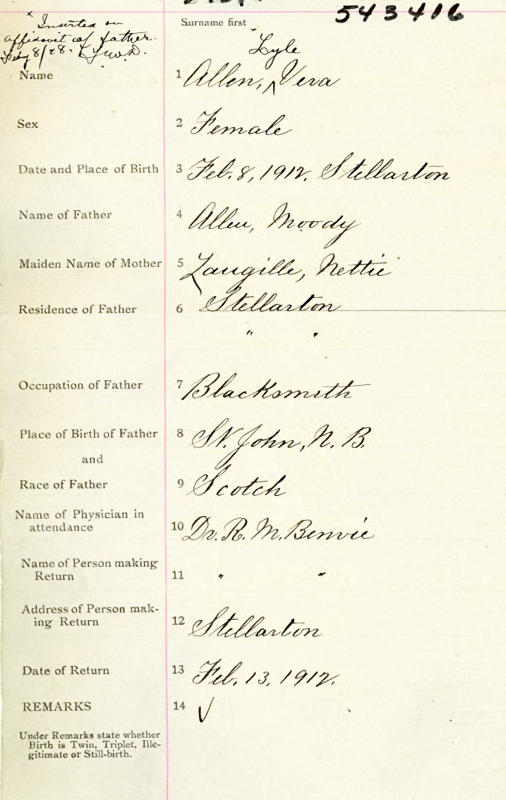 x Inserted on
affidavit of father.
Feby 8/28.
Surname first
543416
Lyle
Name 1 Allen, ^ Vera
Sex 2 Female
Date and Place of Birth 3 Feb. 8, 1912. Stellarton
Name of Father 4 Allen, Moody
Maiden Name of Mother 5 Langille, Nettie
Residence of Father 6 Stellarton
" "
Occupation of Father 7 Blacksmith
Place of Birth of Father 8 St. John, N. B.
and
Race of Father 9 Scotch
Name of Physician in
attendance 10 Dr. R. M. Benvie
Name of Person making
Return 11 " "
Address of Person mak-
ing Return 12 Stellarton
Date of Return 13 Feb. 13, 1912.
REMARKS 14 √
Under Remarks state whether
Birth is Twin, Triplet, Ille-
gitimate or Still-birth.